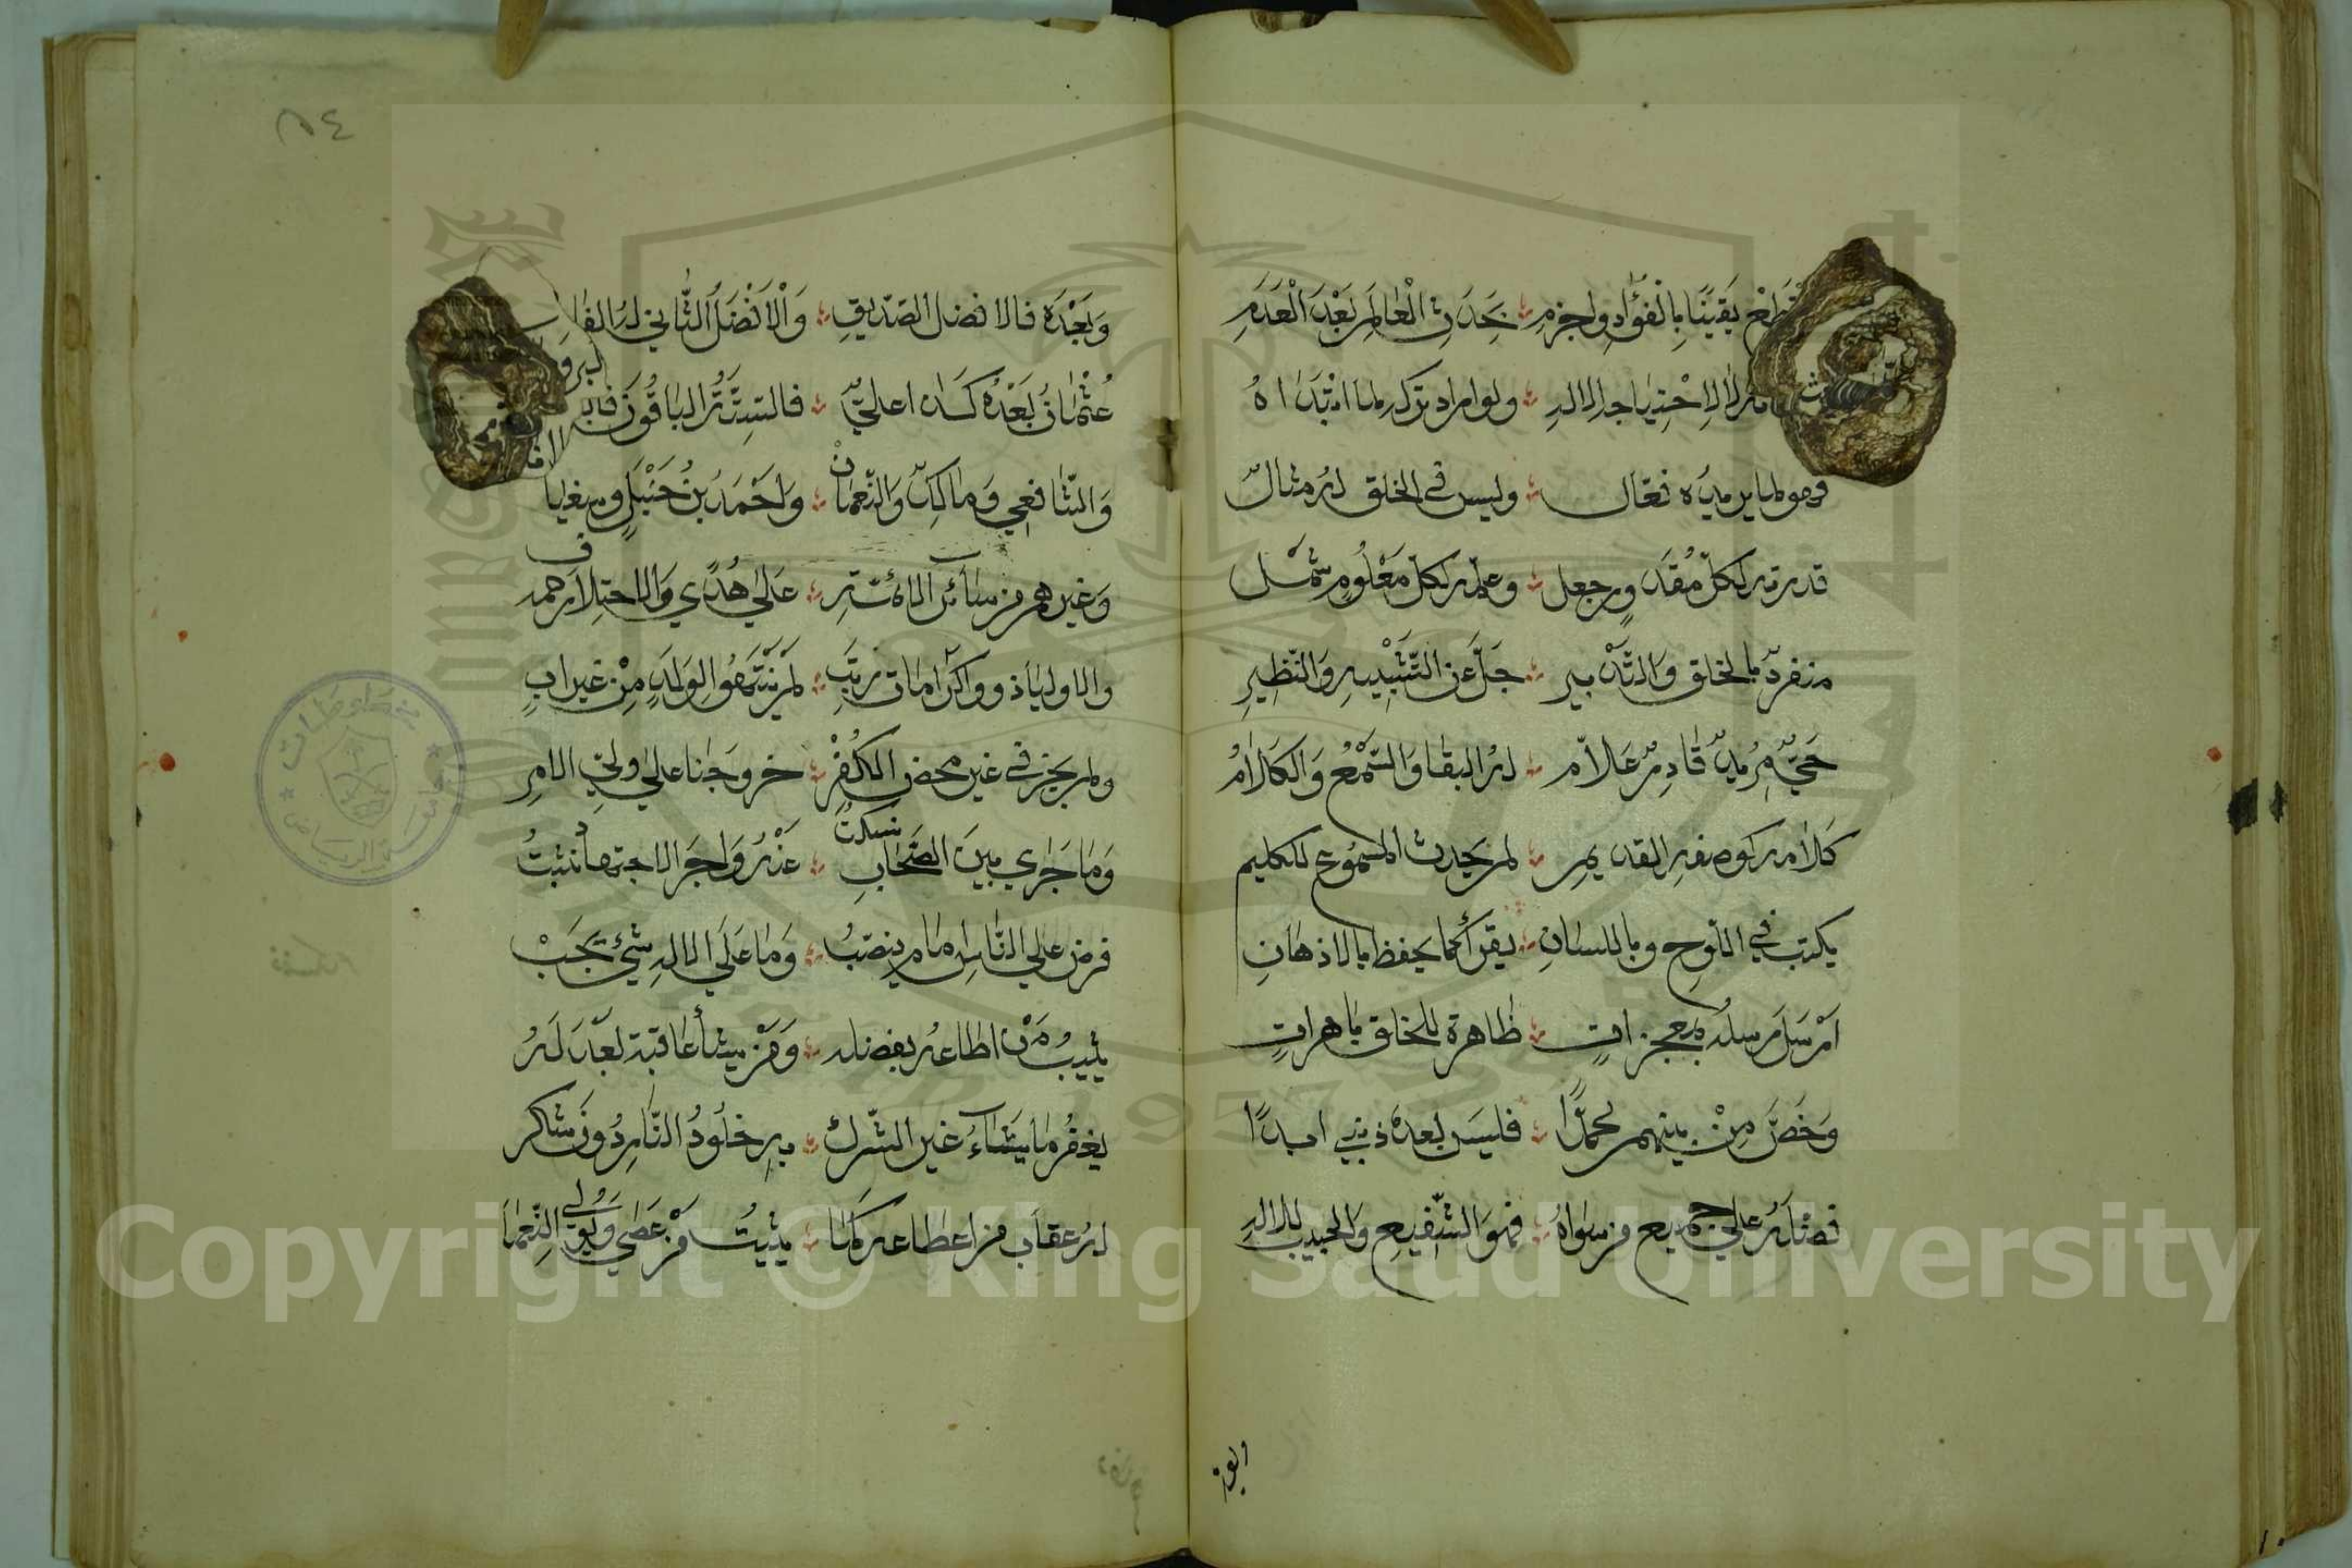 فاقطع يقينا بالفؤاد واجزم ∴ بحدث العالم بعد العدم
لا لاحتياج الاله ∴ ولو اراد تركه لما ابتداه
فهو لما يريده فعال ∴ وليس في الخلق له مثال
قدرته لكل مقدور جعل ∴ وعلمه لكل معلوم شمل
منفرد بالخلق والتدبير ∴ جل عن التشبيه والنظير
حي مريد قادر علام ∴ له البقا والسمع والكلام
كلامه كوصفه القديم ∴ لم يحدث المسموع للكليم
يكتب في اللوح وباللسان ∴ يقرأ كما يحفظ بالاذهان
ارسل رسله بمعجزات ∴ ظاهرة للخلق باهرات
وخص من بينهم محمدا ∴ فليس بعده نبي ابدا
فضله على جميع من سواه ∴ فهو الشفيع والحبيب للاله
وبعده
وبعده فالافضل الصديق ∴ والافضل الثاني له الفاروق
عثمان بعده كذا علي ∴ فالستة الباقون فالبدري
والشافعي ومالك والنعمان ∴ واحمد بن حنبل وسفيان
وغيرهم من سائر الائمة ∴ على هدى والاختلاف رحمه
والاوليا ذوو كرامات رتب ∴ لم ينتهوا لولد من غير اب
ولم يجز في غير محض الكفر ∴ خروجنا على ولي الامر
وما جرى بين الصحاب نسكت ∴ عنه واجر الاجتهاد نثبت
فرض على الناس امام ينصب ∴ وما على الاله شيء يجب
يثيب من اطاعه بفضله ∴ ومن يشأ عاقبه بعدله
يغفر ما يشاء غير الشرك ∴ به خلود النار دون شك
له عقاب من اطاعه كما ∴ يثيب من عصى ويولي النعما
٥٤
Copyright © King Saud University
1957